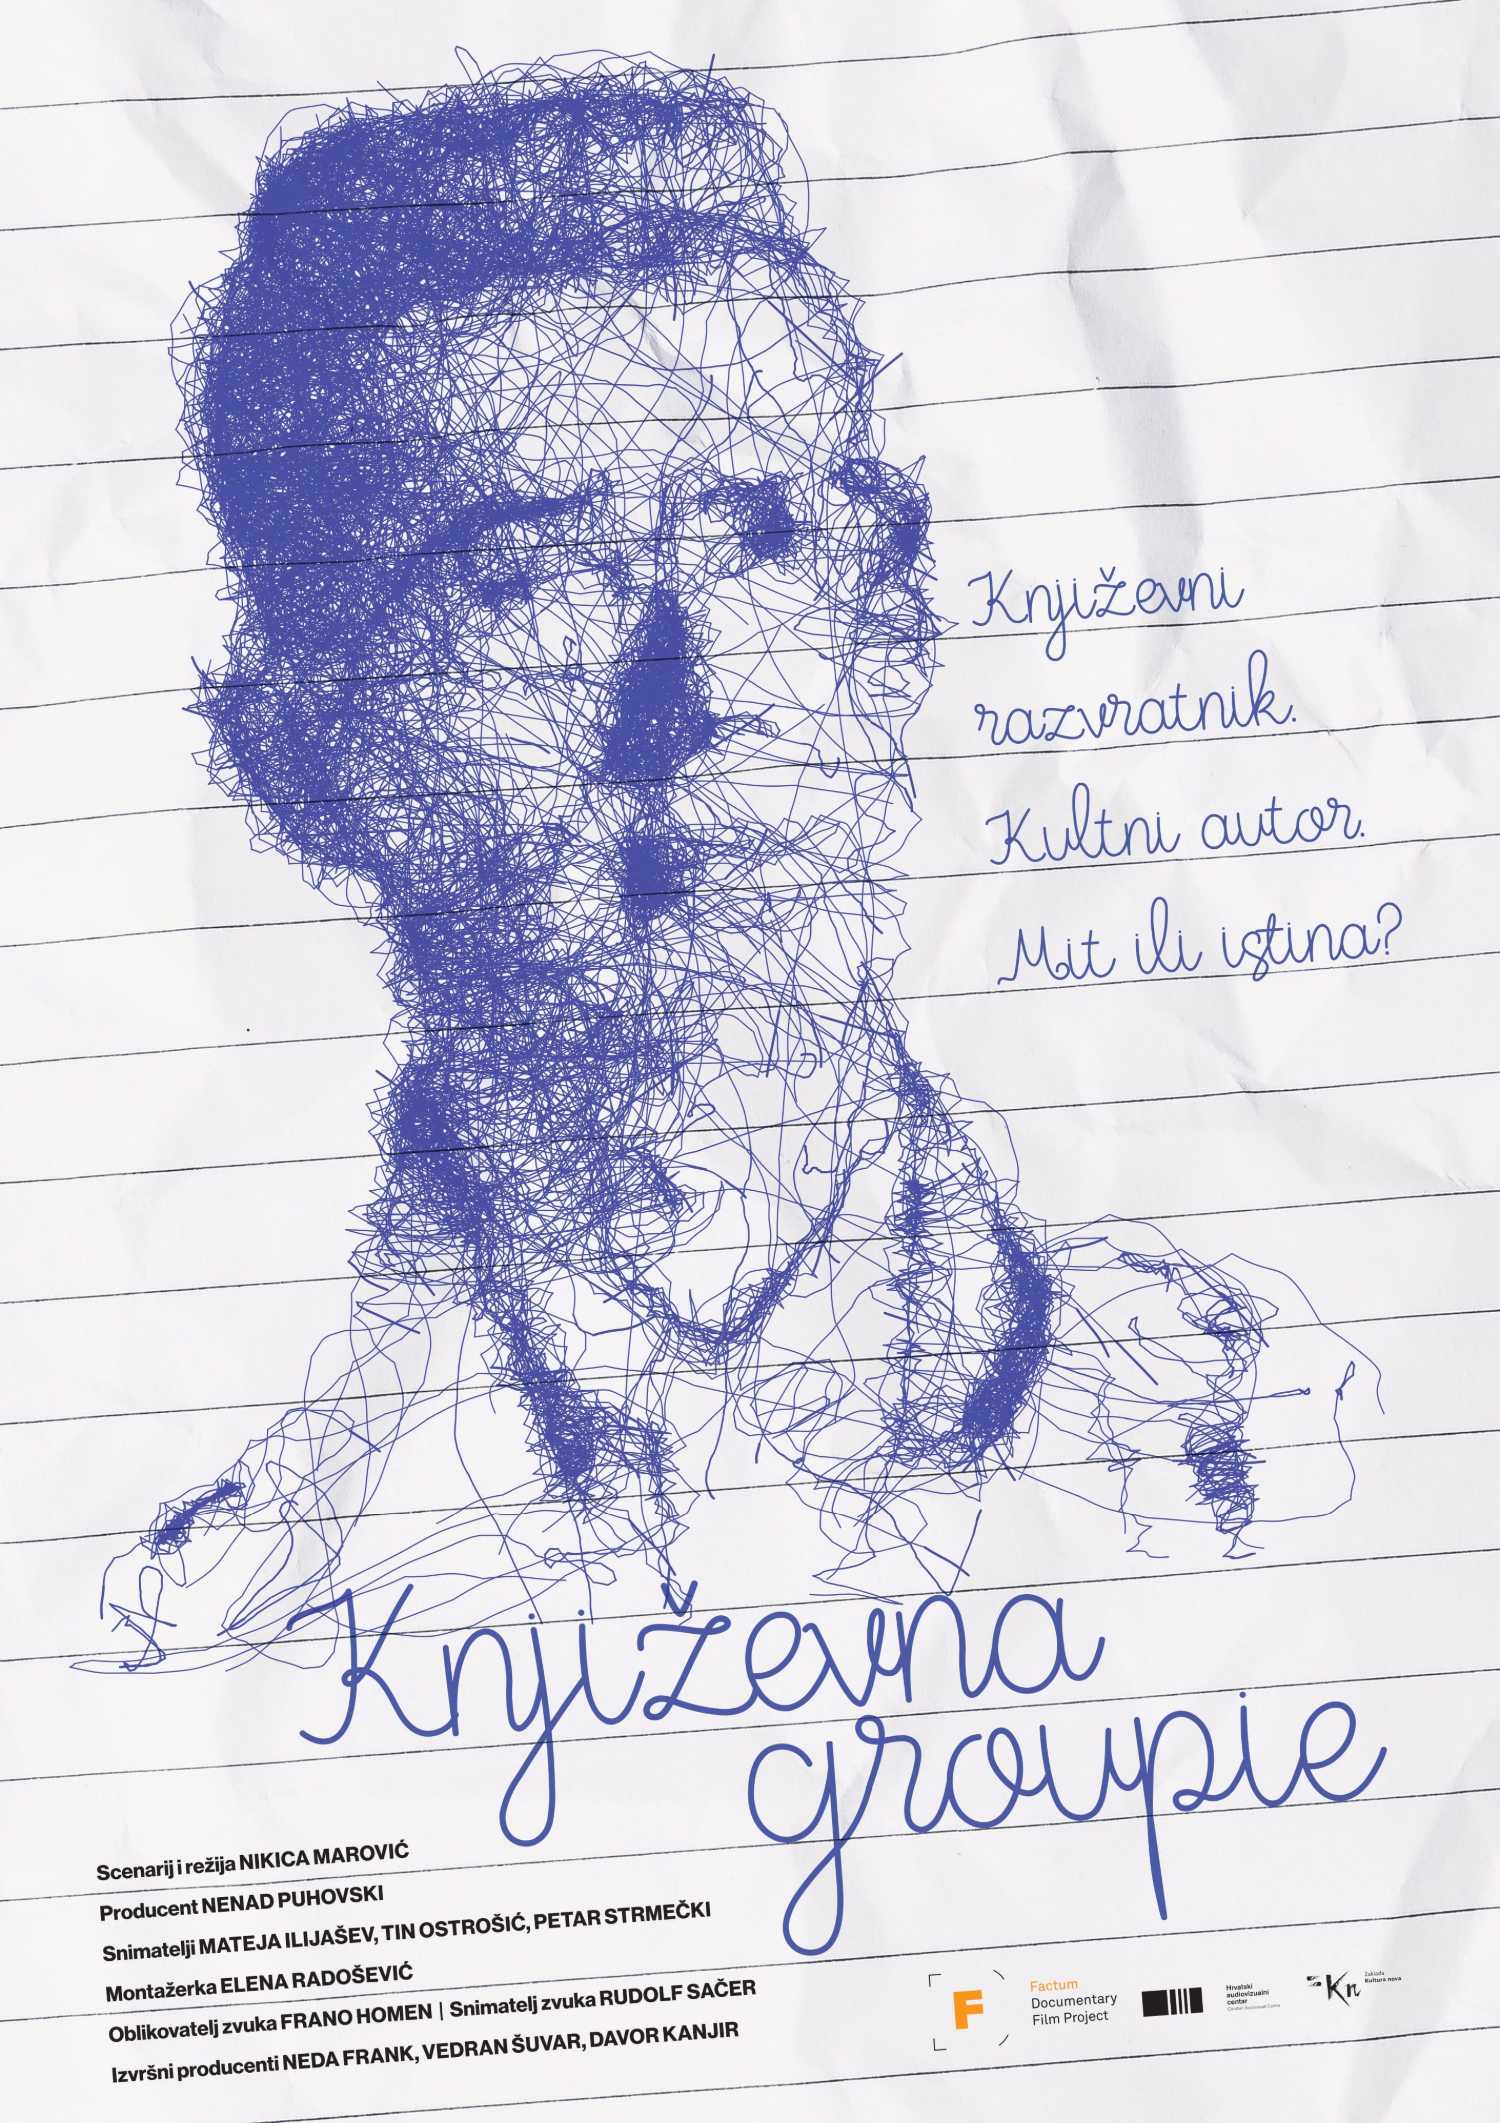 Književni
razvratnik.
Kultni autor.
Mit ili istina?
Književna
groupie
Scenarij i režija NIKICA MAROVIĆ
Producent NENAD PUHOVSKI
Snimatelji MATEJA ILIJAŠEV, TIN OSTROŠIĆ, PETAR STRMEČKI
Montažerka ELENA RADOŠEVIĆ
Oblikovatelj zvuka FRANO HOMEN | Snimatelj zvuka RUDOLF SAČER
Izvršni producenti NEDA FRANK, VEDRAN ŠUVAR, DAVOR KANJIR
F
Factum
Documentary
Film Project
Hrvatski
audiovizualni
centar
Croatian Audiovisual Centre
Kn
Zaklada
Kultura nova